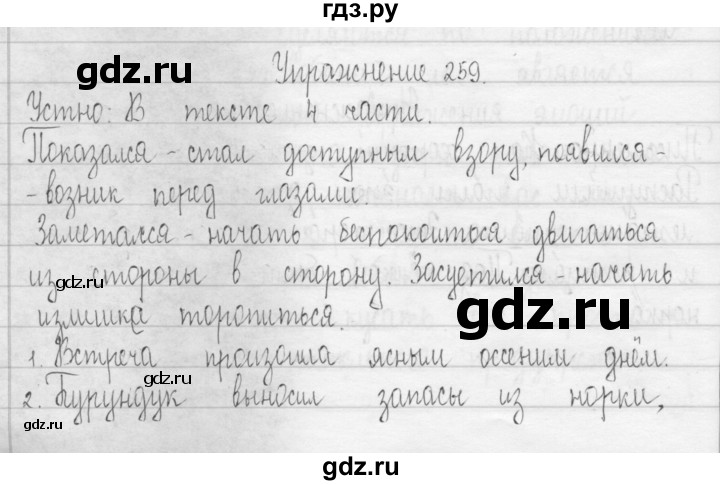 гдз.ру
gdz.ru
Упражнение 259.
Устно: В тексте 4 части.
Показался - стал доступным взору, появился -
- возник перед глазами.
Заметался - начать беспокоиться двигаться
из стороны в сторону. Засуетился - начать
gdz.ru
gdz.ru
излишка торопиться.
1. Встреча произошла ясным осенним днём.
gdz.ru
2. Бурундук выносил запасы из норки,
gdz.ru
gdz.ru